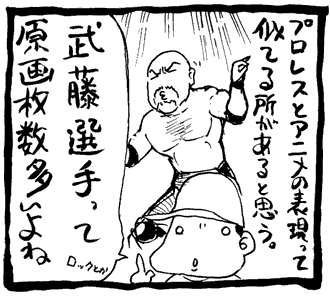 プロレスとアニメの表現って
似てる所があると思う。
武藤選手って
原画枚数多いよね
ロックとか